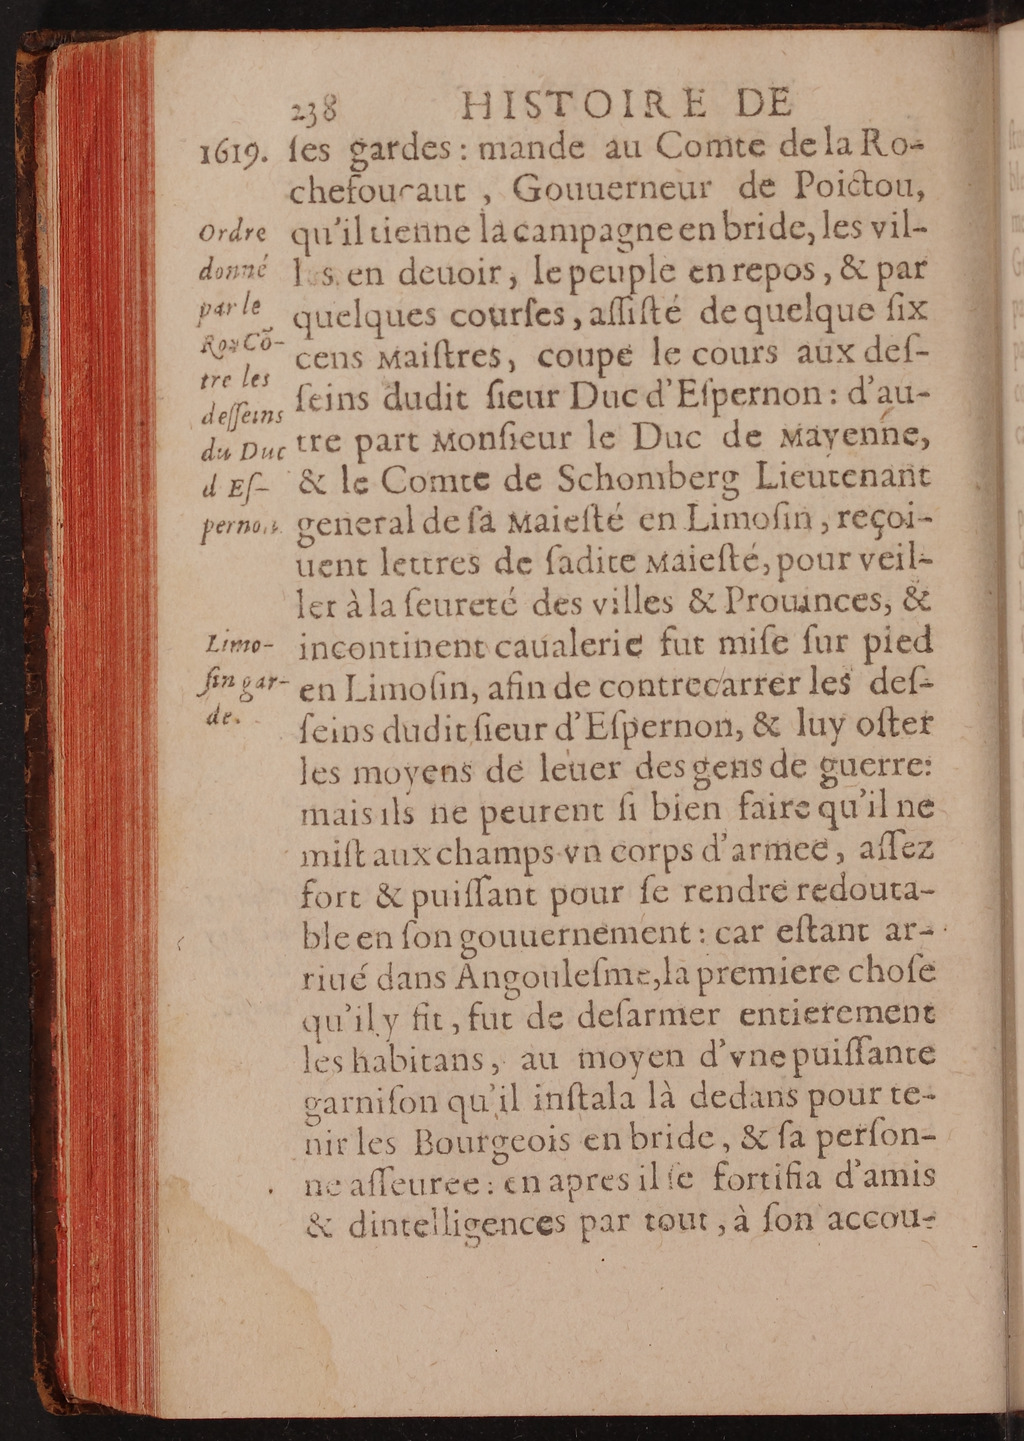 238 HISTOIRE DE
1619. ſes gardes : mande au Comte de la Ro-
chefoucaut , Gouuerneur de Poictou,
qu'il tienne la campagne en bride, les vil-
les en deuoir, le peuple en repos, & par
quelques courſes, aſſiſté de quelque ſix
cens Maiſtres, coupe le cours aux deſ-
ſeins dudit ſieur Duc d'Eſpernon : d'au-
tre part Monſieur le Duc de Mayenne,
& le Comte de Schomberg Lieutenant
general de ſa Maieſté en Limoſin, reçoi-
uent lettres de ſadite Maieſté, pour veil-
ler à la ſeureté des villes & Prouinces, &
incontinent caualerie fut miſe ſur pied
en Limoſin, afin de contrecarrer les deſ-
ſeins dudit ſieur d'Eſpernon, & luy oſter
les moyens de leuer des gens de guerre:
mais ils ne peurent ſi bien faire qu'il ne
miſt aux champs vn corps d'armee, aſſez
fort & puiſſant pour ſe rendre redouta-
ble en ſon gouuernement : car eſtant ar-
riué dans Angouleſme, la premiere choſe
qu'il y fit, fut de deſarmer entierement
les habitans, au moyen d'vne puiſſante
garniſon qu'il inſtala là dedans pour te-
nir les Bourgeois en bride, & ſa perſon-
ne aſſeuree : en apres il ſe fortifia d'amis
& dintelligences par tout, à ſon accou-
Ordre
donné
par le
Roy Cō-
tre les
deſſeins
du Duc
d Eſ-
pernon.
Limo-
ſin gar-
de.